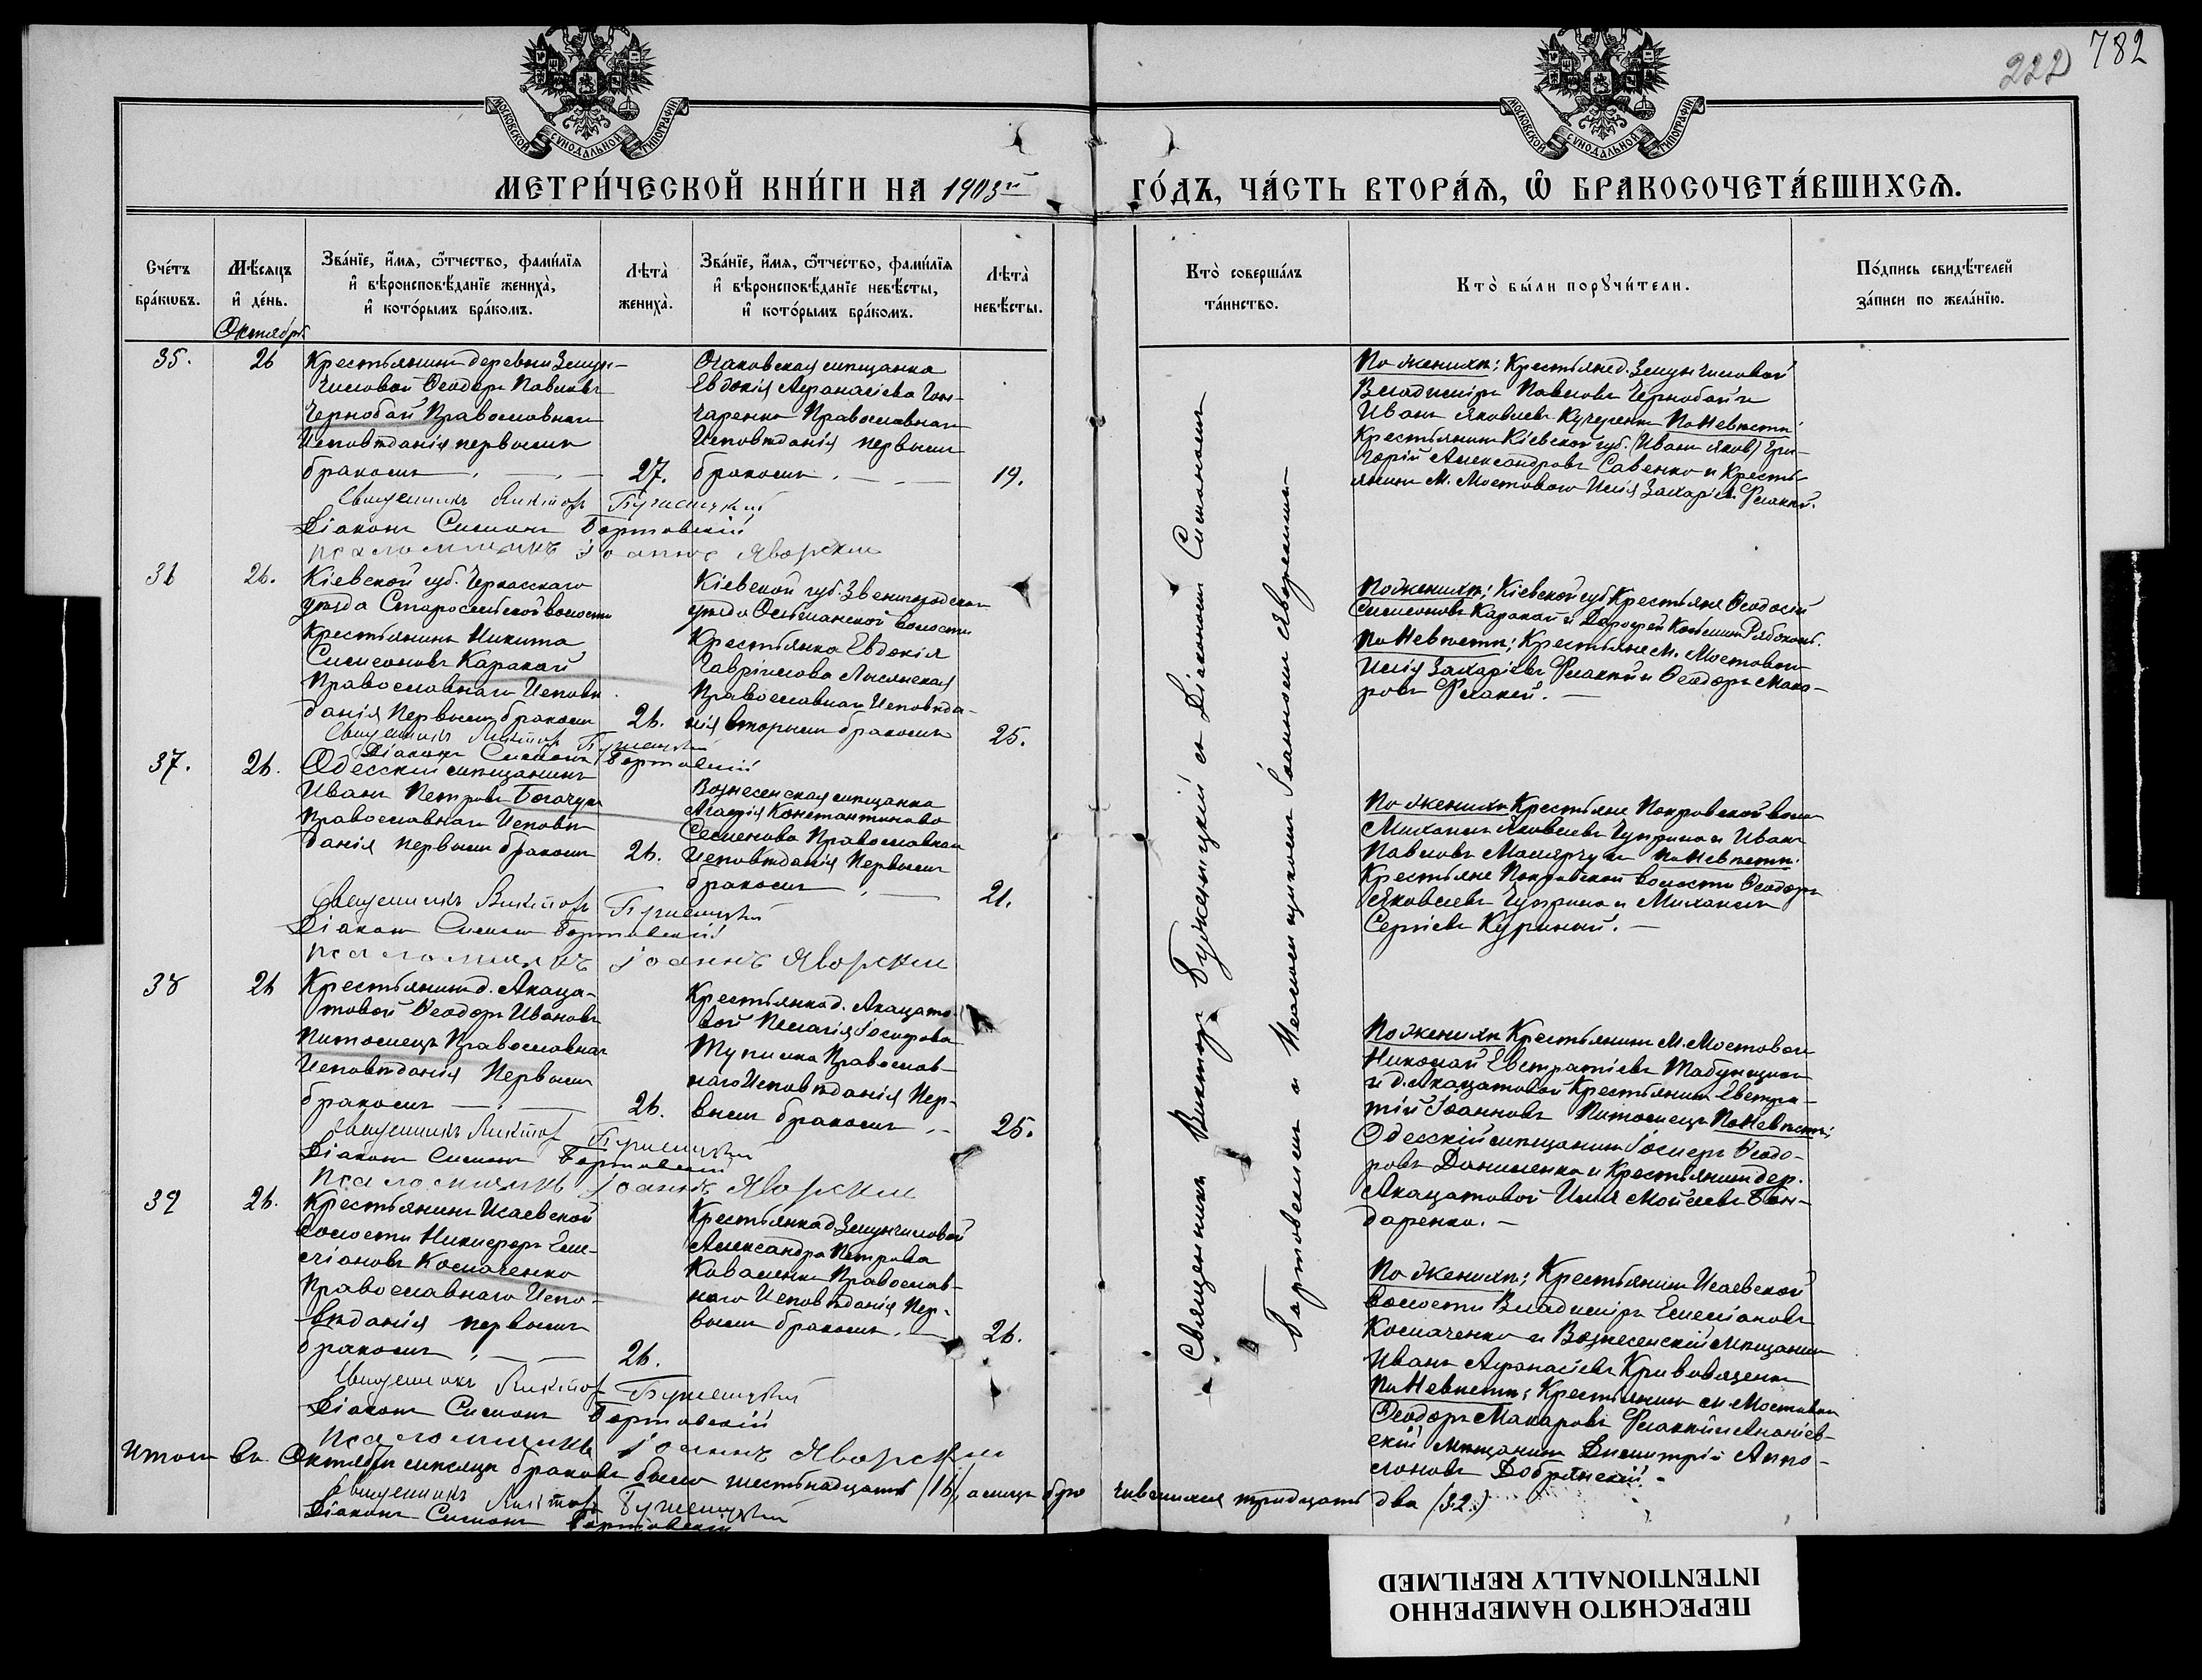 782
222
МОСКОВСКОЙ СУНОДАЛЬНОЙ ТИПОГРАФІИ
МОСКОВСКОЙ СУНОДАЛЬНОЙ ТИПОГРАФІИ
МЕТРИ́ЧЕСКОЙ КНИ́ГИ НА 1903й ГО́ДЪ, ЧА́СТЬ ВТОРА́Я, Ѿ БРАКОСОЧЕТА́ВШИХСЯ.
Сче́тъ бра́кѡвъ.
Мѣ́сяцъ и де́нь.
Зва́нїе, и́мя, ѻ҆́тчество, фами́лїя и вѣроисповѣ́данїе жениха̀, и кото́рымъ бра́комъ.
Лѣта̀ жениха̀.
Зва́нїе, и́мя, ѻ҆́тчество, фами́лїя и вѣроисповѣ́данїе невѣ́сты, и кото́рымъ бра́комъ.
Лѣта̀ невѣ́сты.
Кто̀ соверша́лъ та́инство.
Кто̀ бы́ли порꙋчи́тели.
По́дпись свидѣ́телей за́писи по жела́нїю.
Октябрь
35.
26
Крестьянинъ деревни
Ѳеодоръ Павловъ
Чернобай Православнаго
Исповѣданія первымъ
бракомъ
27.
Очаковская мѣщанка
Евдокія Аѳанасіева Гон-
чаренко Православнаго
Исповѣданія первымъ
бракомъ.
19.
По женихѣ: Крестьяне д.
Владиміръ Павловъ Чернобай и
Иванъ Яковлевъ Кучеренко По Невѣстѣ:
Крестьянинъ Кіевской губ. (Иванъ Яков) Гри-
горій Александровъ Савенко и Кресть-
янинъ М. Мостового Илія Захаріевъ
Священникъ Викторъ Бужетицкій
Діаконъ Симеонъ Бортовскій
Псаломщикъ Іоаннъ Яворскій
36
26.
Кіевской губ. Черкасскаго
уѣзда Старосельской волости
Крестьянинъ Никита
Симеоновъ Каракай
Православнаго Исповѣ-
данія Первымъ бракомъ
26.
Кіевской губ. Звенигородскаго
уѣзда Ольшанской волости
Крестьянка Евдокія
Гавріилова Лысянская
Православнаго Исповѣда-
нія вторымъ бракомъ
25.
По женихѣ: Кіевской губ. Крестьяне Ѳеодосій
Симеоновъ Каракай и Дороѳей
По Невѣстѣ: Крестьяне М. Мостового
Илія Захаріевъ и Ѳеодоръ Мака-
ровъ
Священникъ Викторъ Бужетицкій
Діаконъ Симеонъ Бортовскій
37.
26.
Одесскій мѣщанинъ
Иванъ Петровъ Богачукъ
Православнаго Исповѣ-
данія первымъ бракомъ
26.
Вознесенская мѣщанка
Агаѳія Константинова
Семенова Православнаго
Исповѣданія Первымъ
бракомъ
21.
По женихѣ Крестьяне Покровской вол.
Михаилъ Яковлевъ Чуприна и Иванъ
Павловъ Малярчукъ По Невѣстѣ:
Крестьяне Покровской волости Ѳеодоръ
Яковлевъ Чуприна и Михаилъ
Сергіевъ Куриный.
Священникъ Викторъ Бужетицкій
Діаконъ Симеонъ Бортовскій
Псаломщикъ Іоаннъ Яворскій
38
26
Крестьянинъ д. Акаца-
товой Ѳеодоръ Ивановъ
Питомецъ Православнаго
Исповѣданія Первымъ
бракомъ
26.
Крестьянка д. Акацато-
вой Пелагія Іосифова
Православ-
наго Исповѣданія Пер-
вымъ бракомъ
25.
По женихѣ Крестьянинъ М. Мостового
Николай Евстратіевъ
и д. Акацатовой Крестьянинъ Евстра-
тій Іоанновъ Питомецъ По Невѣстѣ:
Одесскій мѣщанинъ Іосифъ Ѳеодо-
ровъ Даниленко и Крестьянинъ дер.
Акацатовой Илія Мойсіевъ Бон-
даренко.
Священникъ Викторъ Бужетицкій
Діаконъ Симеонъ Бортовскій
Псаломщикъ Іоаннъ Яворскій
39
26.
Крестьянинъ Исаевской
волости Никифоръ Еме-
ліановъ Космаченко
Православнаго Испо-
вѣданія первымъ
бракомъ
26.
Крестьянка д.
Александра Петрова
Коваленко Православ-
наго Исповѣданія Пер-
вымъ бракомъ.
26.
По женихѣ: Крестьянинъ Исаевской
волости Владиміръ Емеліановъ
Космаченко и Вознесенскій мѣщанинъ
Иванъ Аѳанасіевъ
По Невѣстѣ: Крестьянинъ м. Мостового
Ѳеодоръ Макаровъ и Ананіев-
скій мѣщанинъ Димитрій Аппо-
лоновъ Добрянскій.
Священникъ Викторъ Бужетицкій
Діаконъ Симеонъ Бортовскій
Псаломщикъ Іоаннъ Яворскій
Священникъ Викторъ Бужетицкій съ Діакономъ Симеономъ
Бортовскимъ и Псаломщикомъ Іоанномъ Яворскимъ
Итого въ Октябрѣ мѣсяцѣ браковъ было шестьнадцать (16), а лицъ бра чившихся тридцать два (32.)
Священникъ Викторъ Бужетицкій
Діаконъ Симеонъ Бортовскій
ПЕРЕСНЯТО НАМЕРЕННО
INTENTIONALLY REFILMED